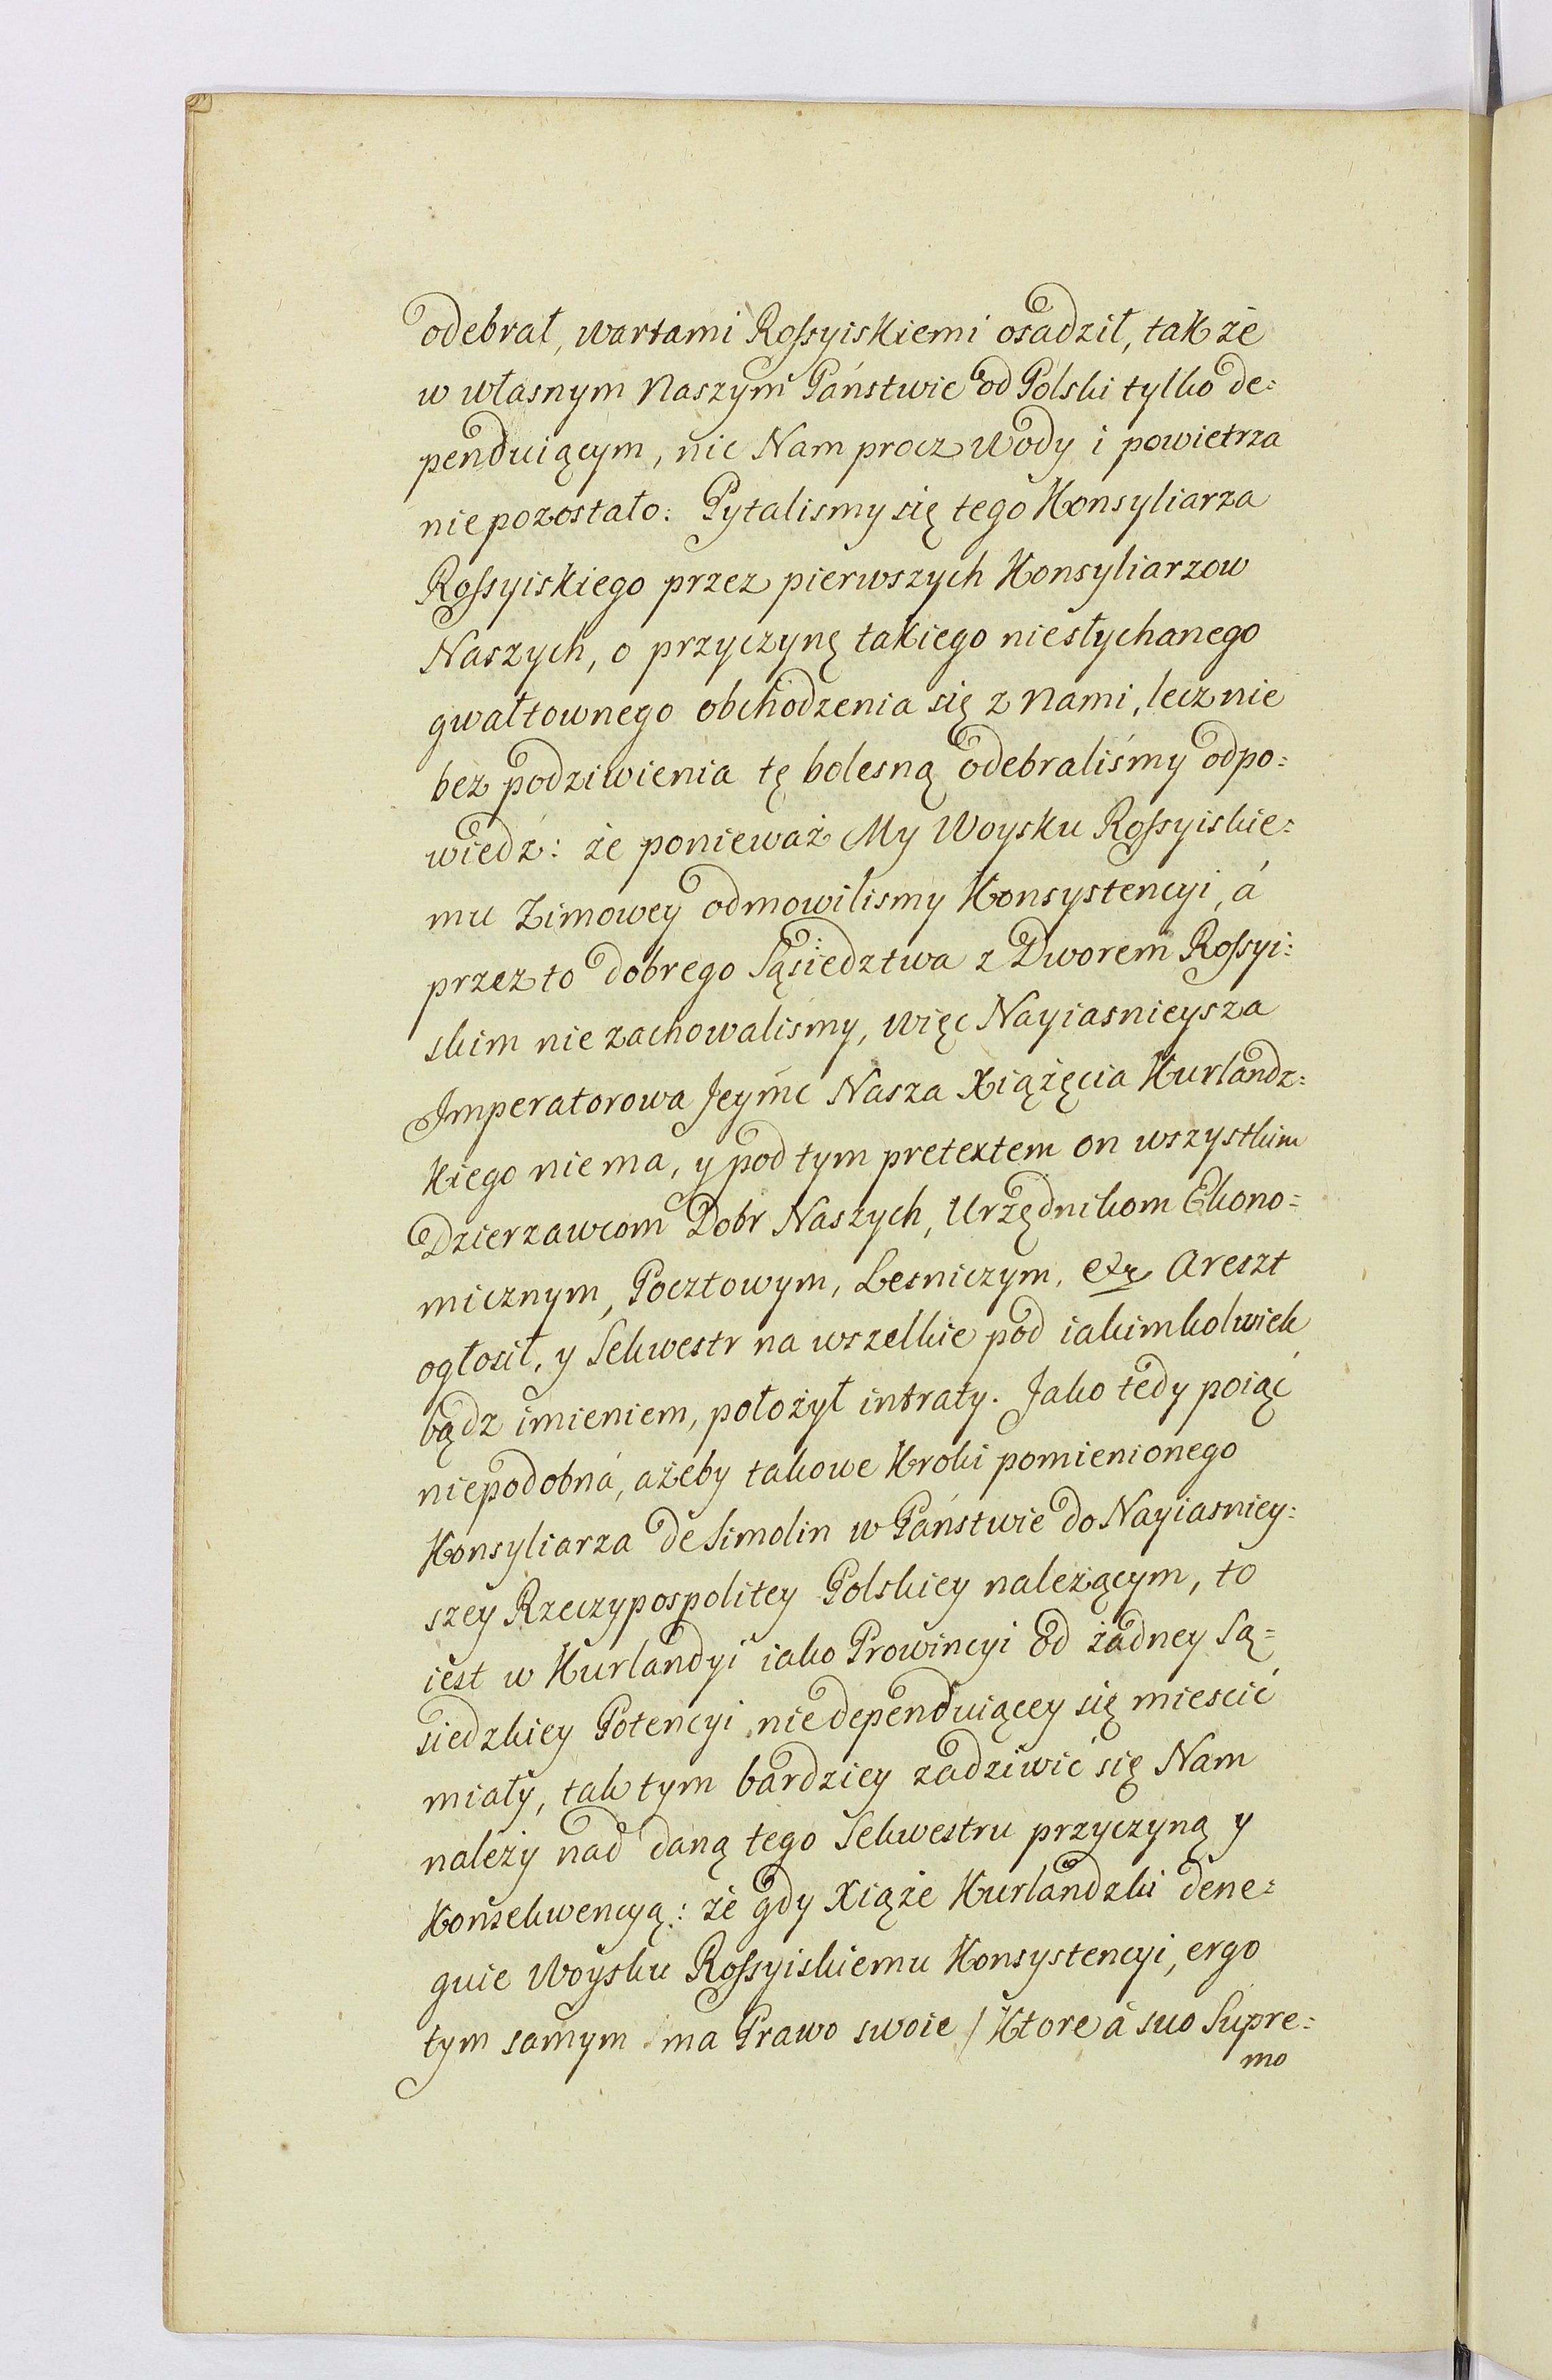 odebrał, wartami Rossyiskiemi osadził, tak że
w własnym Naszym Państwie od Polski tylko de=
penduiącym, nic Nam procz wody i powietrza
nie pozostało: Pytalismy się tego Konsyliarza
Rossyiskiego przez pierwszych Konsyliarzow
Naszych, o przyczynę takiego niesłychanego
gwałtownego obchodzenia się z Nami, lecz nie
bez podziwienia tę bolesną odebraliśmy odpo=
wiedź: że ponieważ My Woysku Rossyiskie=
mu Zimowey odmowilismy Konsystencyi, á
przez to dobrego Sąsiedztwa z Dworem Rossyi=
skim nie zachowaliśmy, więc Nayiasnieysza
Imperatorowa Jeymć Nasza Xiążęcia Kurlandz=
kiego nie ma, y pod tym pretextem on wszystkim
Dzierzawcom Dobr Naszych, Urzędnikom Ekono=
micznym, Pocztowym, Lesniczym, etc Areszt
ogłosił, y Sekwestr na wszelkie pod iakimkolwiek
bądz imieniem, położył intraty. Jako tedy poiąć
niepodobná, ażeby takowe Kroki pomienionego
Konsyliarza de Simolin w Państwie do Nayiasniey=
szey Rzeczypospolitey Polskiey należącym, to
iest w Kurlandyi iako Prowincyi od żadney Są=
siedzkiey Potencyi niedependuiącey się miescić
miały, tak tym bardziey zadziwić się Nam
należy nad daną tego Sekwestru przyczyną y
Konsekwencyą: że gdy Xiąże Kurlandzki dene=
guie Woysku Rossyiskiemu Konsystencyi, ergo
tym samym ma Prawo swoie / Ktore à suo Supre=
mo